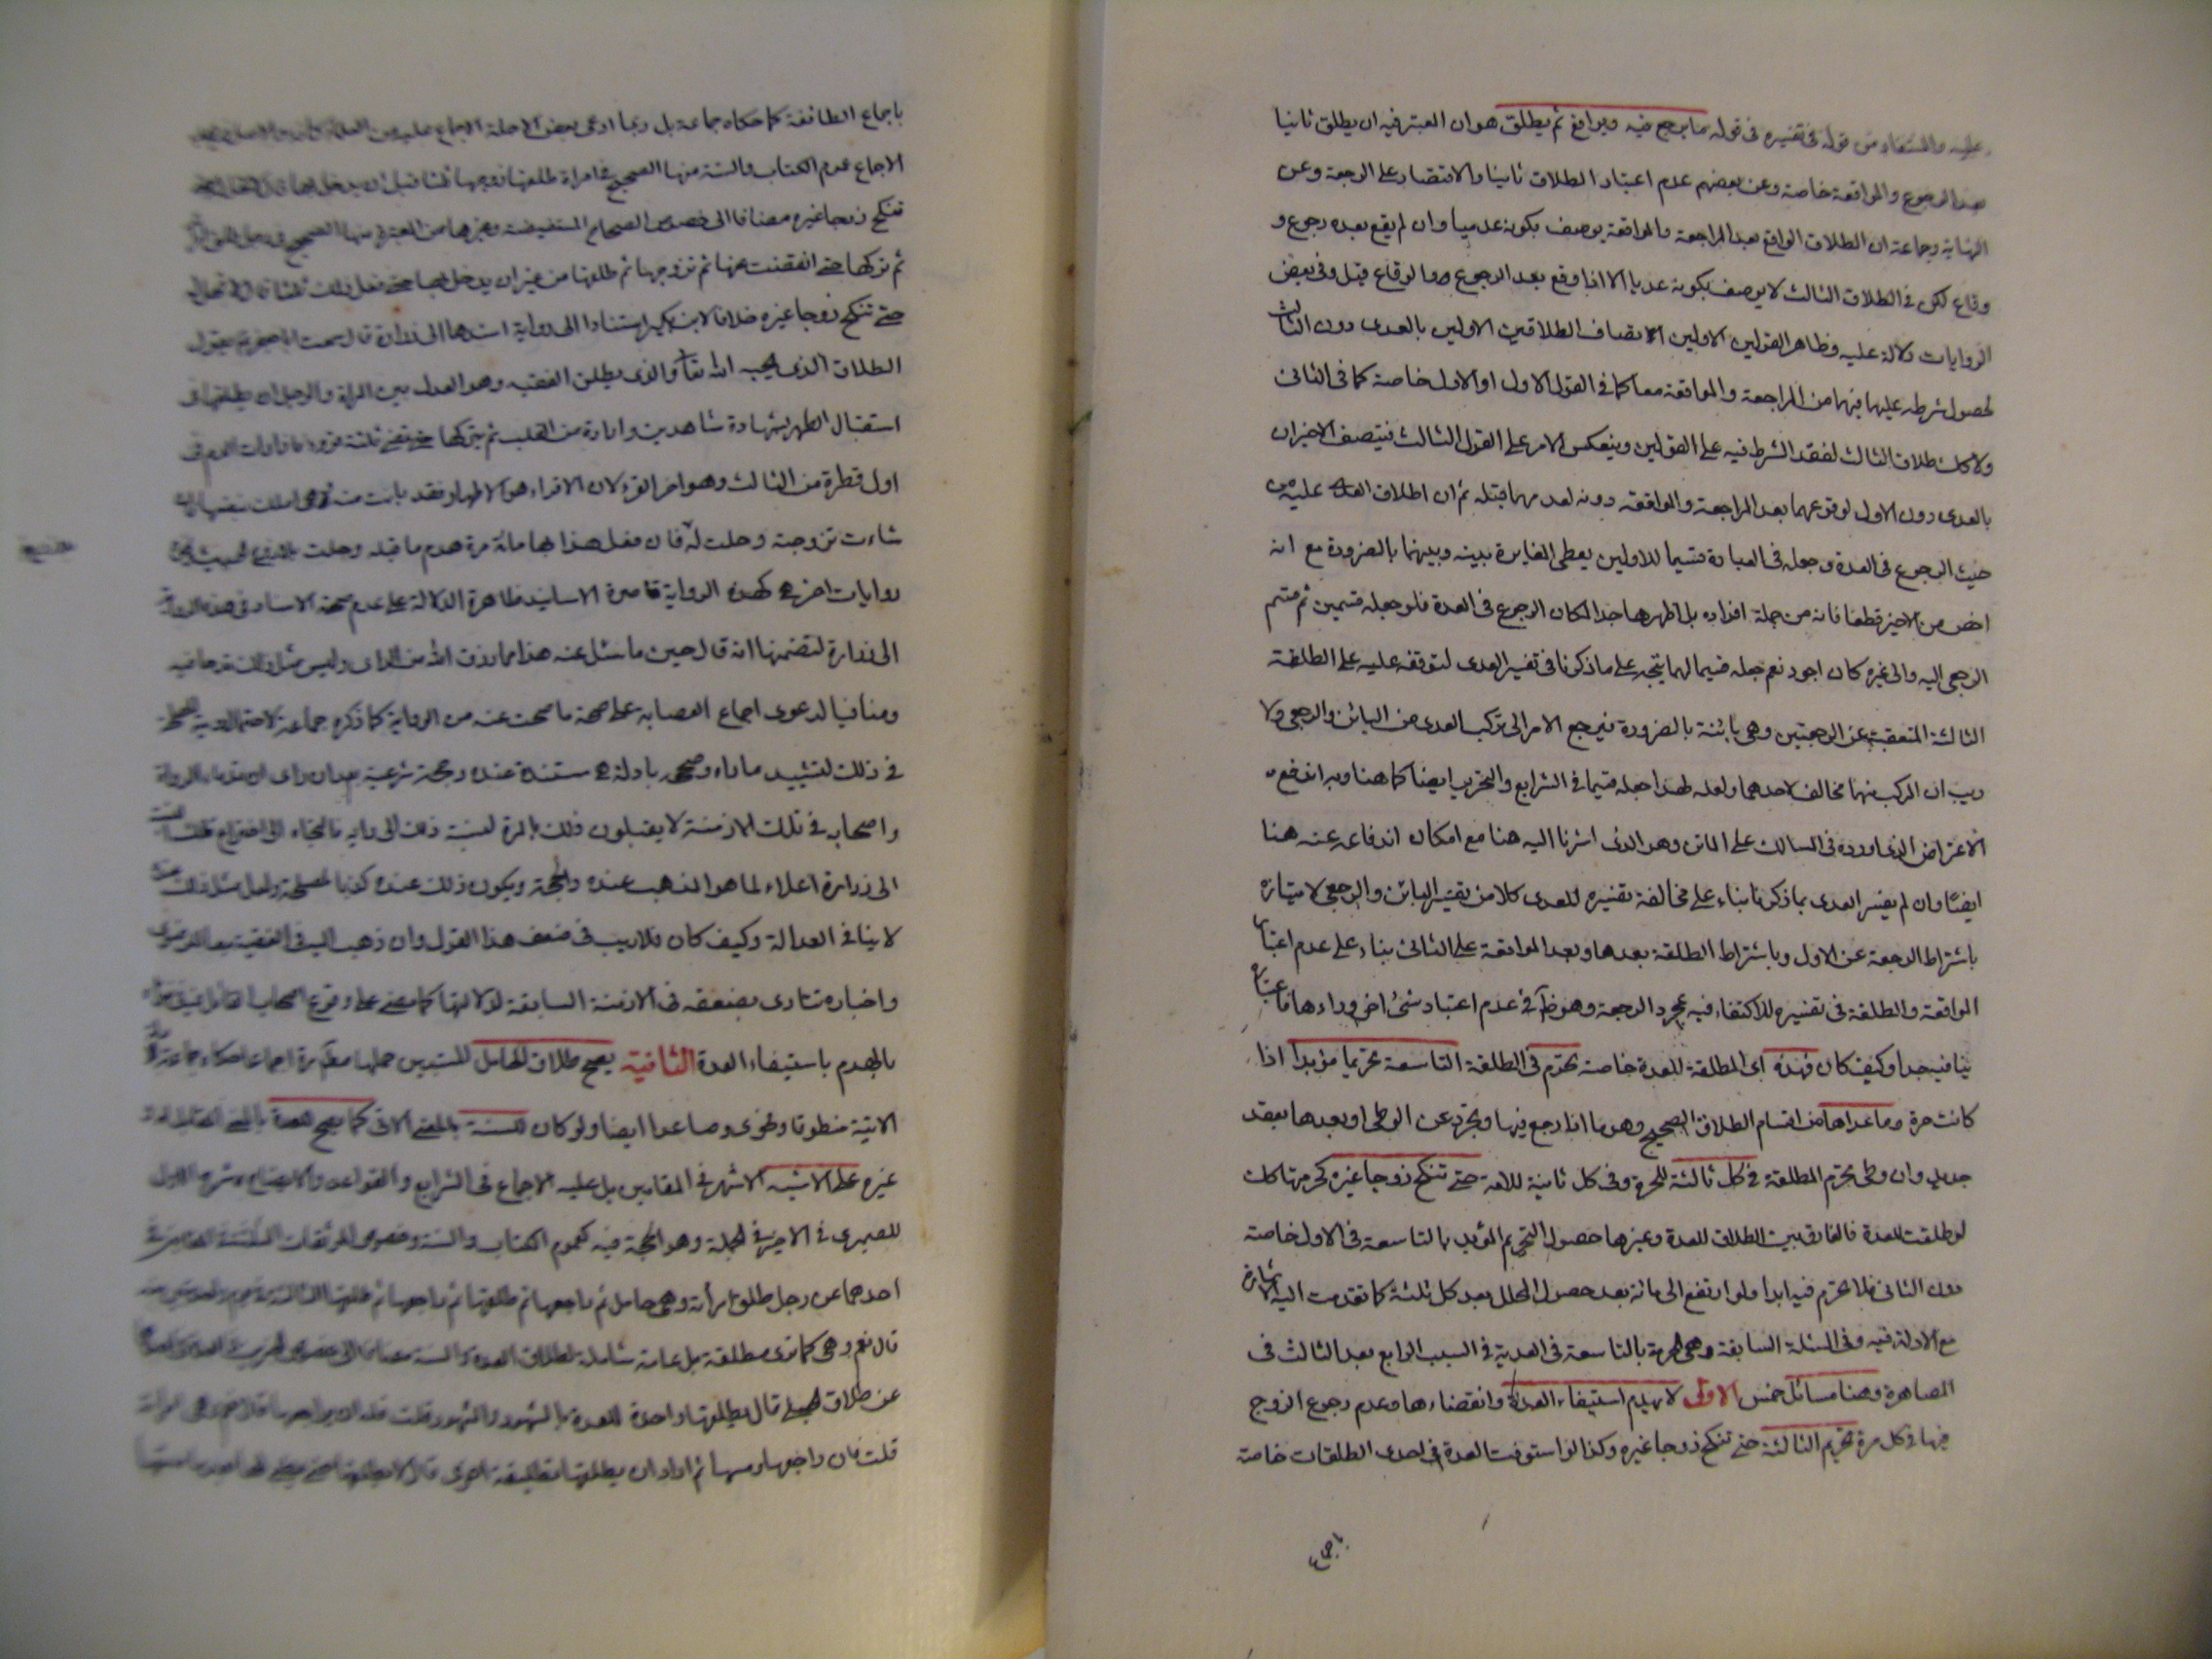 عليه والمستفاد من قوله في تفسيره في قوله ما يرجع فيه ويواقع ثم يطلق هو ان المعتبر فيه ان يطلق ثانيا
بعد الرجوع والمواقعة خاصة وعن بعضهم عدم اعتبار الطلاق ثانيا والاقتصار على الرجعة وعن
النهاية وجماعة ان الطلاق الواقع بعد المراجعة والمواقعة يوصف بكونه عديا وان لم يقع بعده رجوع و
وقاع لكن في الطلاق الثالث لا يوصف بكونه عديا الا اذا وقع بعد الرجوع والوقاع قيل وفي بعض
الروايات دلالة عليه وظاهر القولين الاولين اتصاف الطلاقين الاولين بالعدى دون الثالث
لحصول شرطه عليهما فيهما من المراجعة والمواقعة معا كما في القول الاول او الاول خاصة كما في الثاني
ولا كك طلاق الثالث لفقد الشرط فيه على القولين وينعكس الامر على القول الثالث فيتصف الاخيران
بالعدى دون الاول لوقوعهما بعد المراجعة والمواقعة دونه لعدمهما قبله ثم ان اطلاق العدى عليه من
حيث الرجوع في العدة وجعله في العبارة قسيما للاولين يعطى المغايرة بينه وبينهما بالضرورة مع انه
اخص من الاخير قطعا فانه من جملة افراده بل اظهرها جدا لمكان الرجوع في العدة فلو جعله قسمين ثم قسم
الرجعى اليه والى غيره كان اجود نعم جعله قسيما لهما يتجه على ما ذكرنا في تفسير العدى لتوقفه عليه على الطلقة
الثالثة المتعقبة عن الرجعتين وهي بائنة بالضرورة فيرجع الامر الى تركب العدى من البائن والرجعى ولا
ريب ان المركب منهما مخالف لاحدهما ولعله لهذا جعله قسيما في الشرايع والتحرير ايضا كما هنا وبه اندفع
الاعتراض الذي اورده في المسالك على الماتن وهو الذى اشرنا اليه هنا مع امكان اندفاعه عنه هنا
ايضا وان لم يفسر العدى بما ذكرنا بناء على مخالفة تفسيره للعدى كلا من تفسير البائن والرجعى لامتيازه
باشتراط الرجعة عن الاول وباشتراط الطلقة بعدها وبعد المواقعة على الثاني بناء على عدم اعتبار
المواقعة والطلقة في تفسيره للاكتفاء فيه بمجرد الرجعة وهو ظ في عدم اعتبار شئ اخر وراءها فاعتباره
ينافيه جدا وكيف كان فهذه اى المطلقة للعدة خاصة تحرم في الطلقة التاسعة تحريما مؤبدا اذا
كانت حرة وما عداها من اقسام الطلاق الصحيح وهو ما اذا رجع فيها وتجرد عن الوطى او بعدها بعقد
جديد وان وطى تحرم المطلقة في كل ثالثة للحرة وفى كل ثانية للامة حتى تنكح زوجا غيره كحرمتها كك
لو طلقت للعدة فالفارق بين الطلاق للعدة وغيرها حصول التحريم المؤبد بالتاسعة في الاول خاصة
دون الثاني فلا تحرم فيه ابدا ولو ارتفع الى مائة بعد حصول المحلل بعد كل ثلثة كما تقدمت اليه الاشارة
مع الادلة فيه وفى المسئلة السابقة وهي الحرمة بالتاسعة في العدية في السبب الرابع بعد الثالث في
المصاهرة وهنا مسائل خمس الاولى لا يهدم استيفاء العدة وانقضاءها وعدم رجوع الزوج
فيها في كل مرة تحريم الثالثة حتى تنكح زوجا غيره وكذا لو استوفت العدة في احدى الطلقات خاصة
باجماع
باجماع الطائفة كما حكاه جماعة بل ربما ادعى بعض الاجلة الاجماع عليه من
الاجماع عموم الكتاب والسنة منها الصحيح في امراة طلقها زوجها ثلثا قبل ان يدخل بها قال لا تحل له حتى
تنكح زوجا غيره مضافا الى خصوص الصحاح المستفيضة وغيرها من المعتبرة منها الصحيح في رجل طلق امرأته
ثم تركها حتى انقضت عدتها ثم تزوجها ثم طلقها من غير ان يدخل بها حتى فعل ذلك ثلثا قال لا تحل له
حتى تنكح زوجا غيره خلافا لابن بكير استنادا الى رواية اسندها الى زرارة قال سمعت ابا جعفر ع يقول
الطلاق الذي يحبه الله تعا والذى يطلق الفقيه وهو العدل بين المراة والرجل ان يطلقها في
استقبال الطهر بشهادة شاهدين وارادة من القلب ثم يتركها حتى تمضى ثلثة قروء فاذا رات الدم في
اول قطرة من الثالث وهو اخر القرء لان الاقراء هو الاطهار فقد بانت منه وهي املك بنفسها فان
شاءت تزوجته وحلت له فان فعل هذا بها مائة مرة هدم ما قبله وحلت بلا زوج
روايات اخر هي كهذه الرواية قاصرة الاسانيد ظاهرة الدلالة على عدم صحة الاسناد في هذه الرواية
الى زرارة لتضمنها انه قال حين ما سئل عنه هذا مما رزق الله من الراى وليس مثل ذلك قدحا فيه
ومنافيا لدعوى اجماع العصابة على صحة ما صحت عنه من الرواية كما ذكره جماعة لاحتمال
في ذلك لتشييد ما راه وصححه بادلة هي مستندة عنده وحجة شرعية
واصحابه في تلك الازمنة لا يقبلون ذلك بالمرة لنسبة ذلك الى رايه فالتجاء الى اختراع
الى زرارة اعلاء لما هو المذهب عنده والحجة ويكون ذلك عنده كذبا لمصلحة ولعل مثل ذلك
لا ينافى العدالة وكيف كان فلا ريب في ضعف هذا القول وان ذهب اليه في الفقيه
واخباره تنادى بضعفه في الازمنة السابقة لدلالتها كما مضى على وقوع
بالهدم باستيفاء العدة الثانية يصح طلاق الحامل للمستبين حملها مطلقا مرة اجماعا حكاه جماعة
الاتية منطوقا وفحوى وصاعدا ايضا ولو كان للسنة بالمعنى الاتى كما يصح للعدة بالمعنى
غيره على الاشبه الاشهر في المقامين بل عليه الاجماع في الشرايع والقواعد والايضاح وشرح
للصيمرى في الاخير في الجملة وهو الحجة فيه كعموم الكتاب والسنة وخصوص الموثقات الثلثة
احدهما عن رجل طلق امرأته وهي حامل ثم راجعها ثم طلقها ثم راجعها ثم طلقها الثالثة
قال نعم وهي كما ترى مطلقة بل عامة شاملة لطلاق العدة والسنة مضافا الى خصوص
عن طلاق الحبلى قال يطلقها واحدة للعدة بالشهور والشهود قلت فله ان يراجعها قال نعم وهي امراته
قلت فان راجعها ومسها ثم اراد ان يطلقها تطليقة اخرى قال لا يطلقها حتى يمضى لها